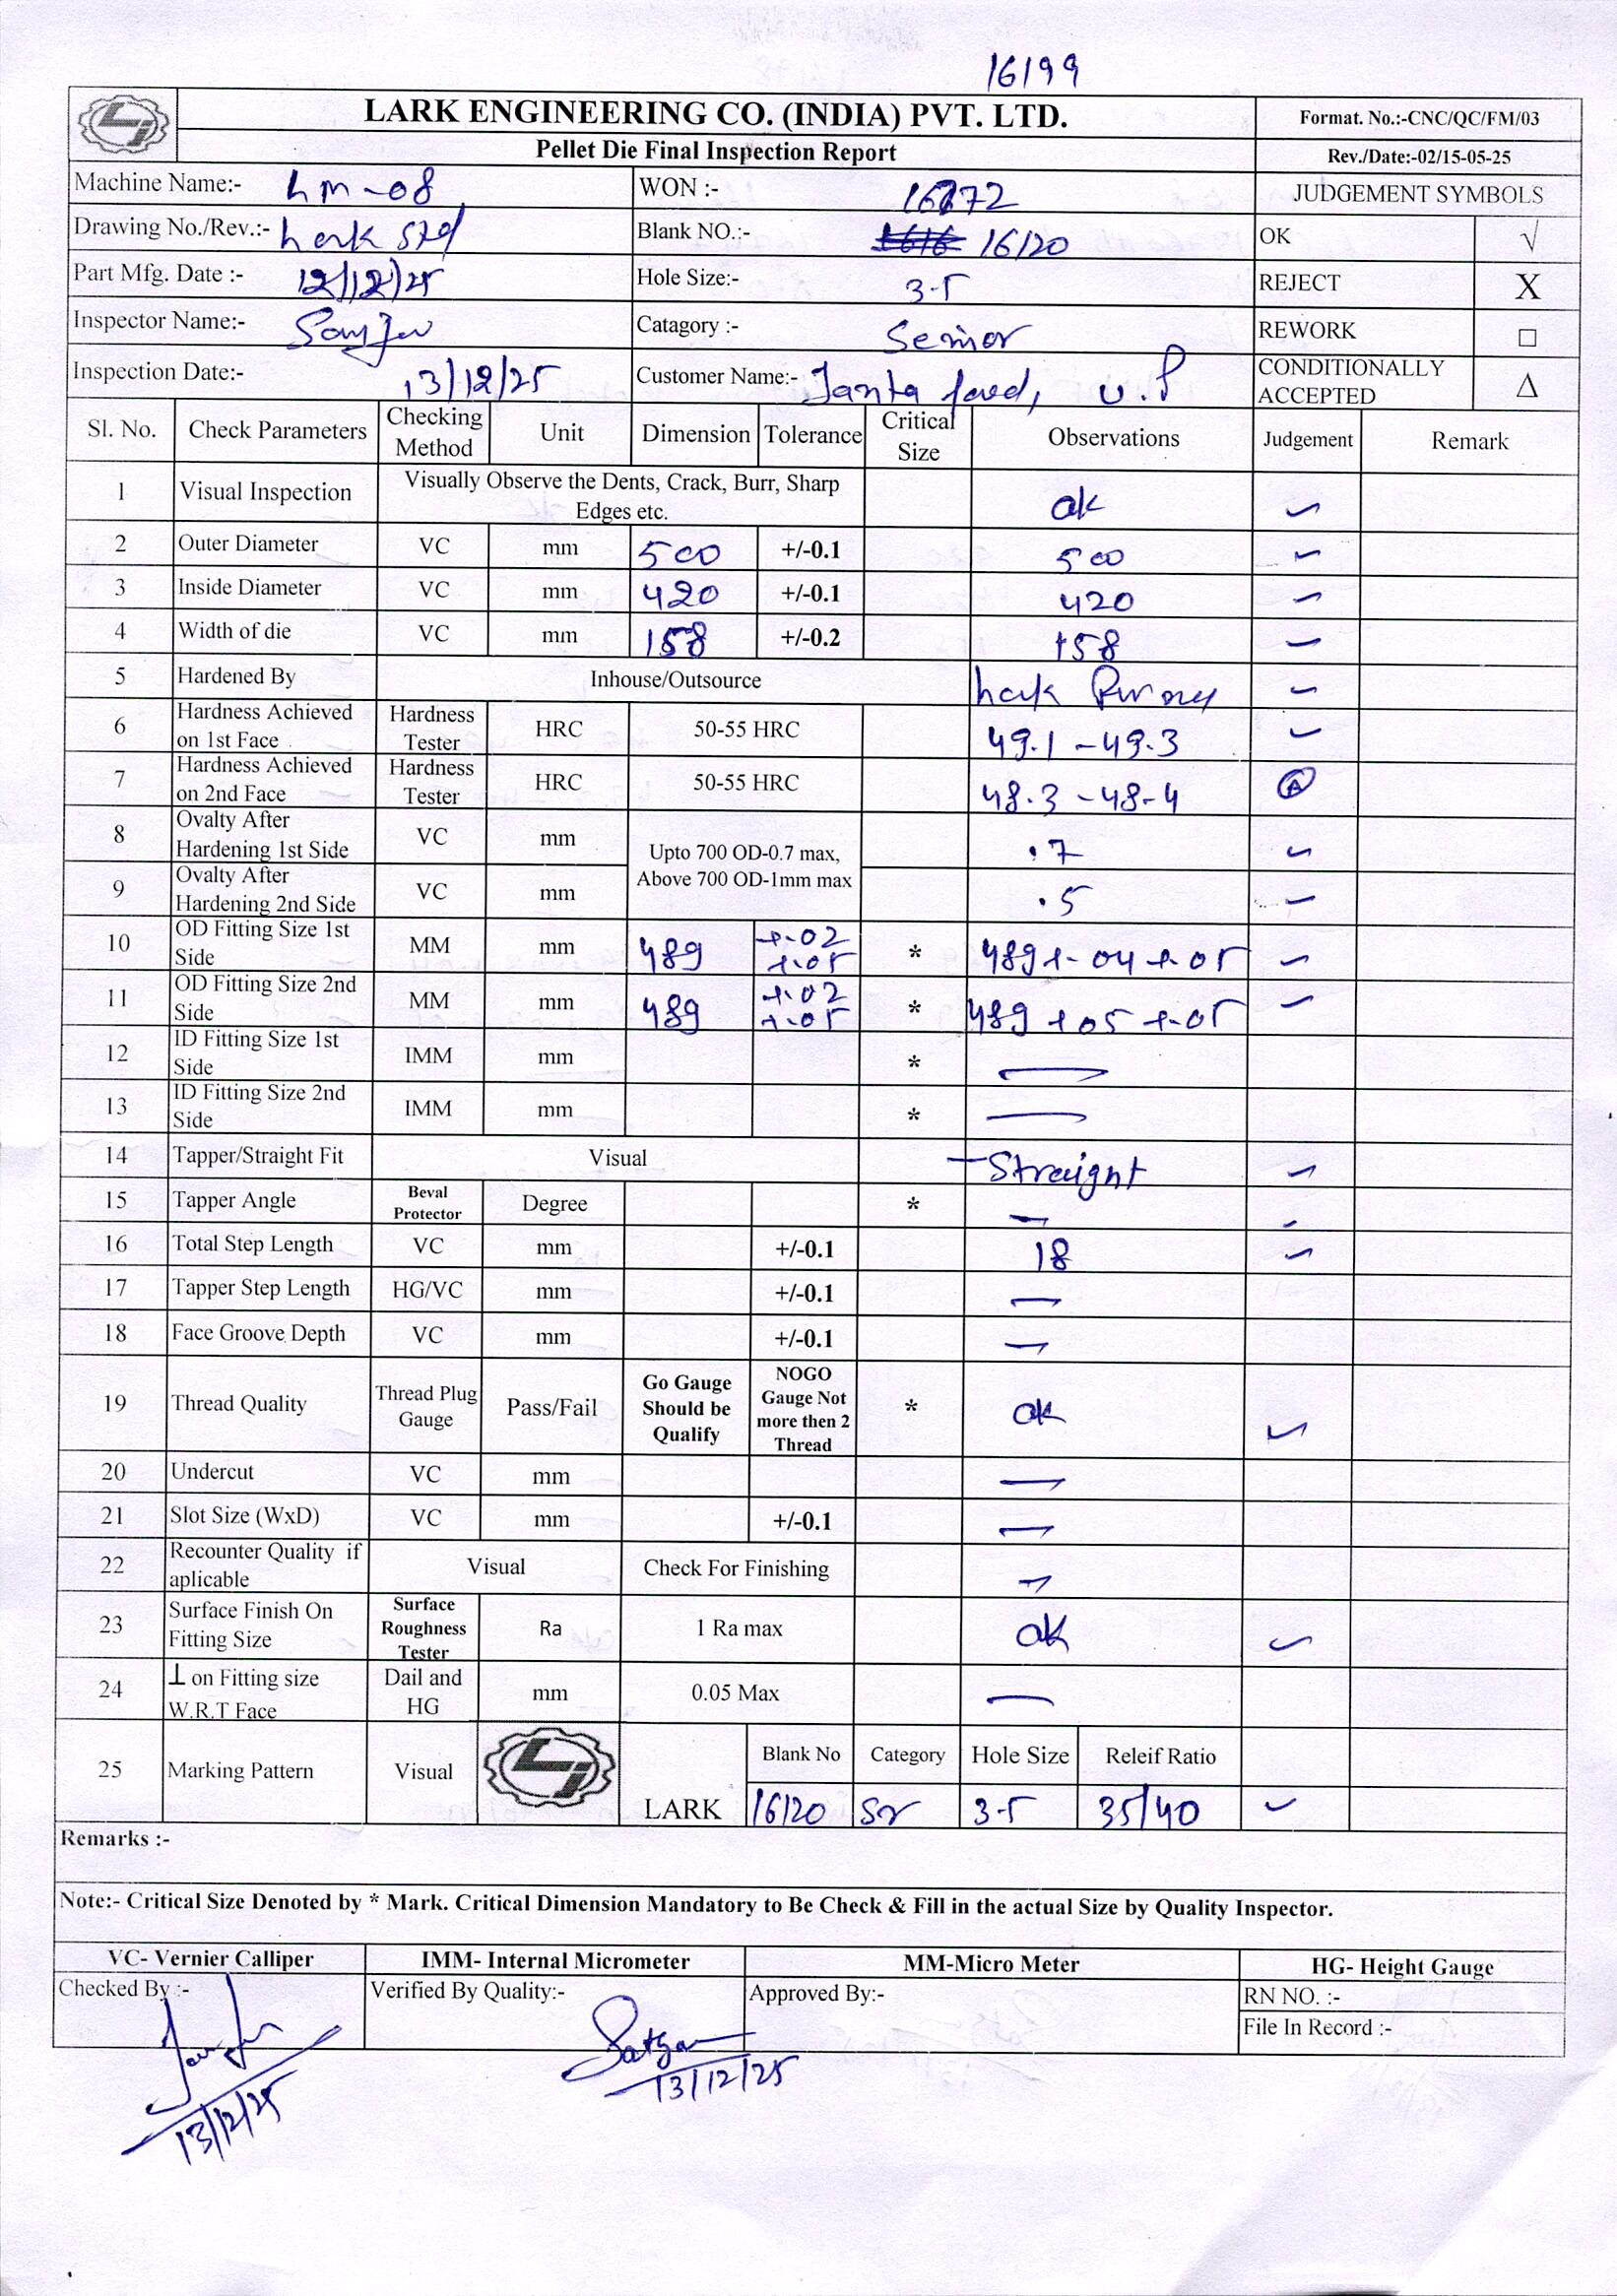 16199
LARK ENGINEERING CO. (INDIA) PVT. LTD.
Format. No.:-CNC/QC/FM/03
Pellet Die Final Inspection Report
Rev./Date:-02/15-05-25
Machine Name:- LM-08 WON :- JUDGEMENT SYMBOLS
Drawing No./Rev.:- Lark Std Blank NO.:- 16120 OK √
Part Mfg. Date :- 12/12/25 Hole Size:- 3.5 REJECT X
Inspector Name:- Catagory :- Senior REWORK □
Inspection Date:- 13/12/25 Customer Name:- Janta feed, U.P CONDITIONALLY ACCEPTED Δ
Sl. No. Check Parameters Checking Method Unit Dimension Tolerance Critical Size Observations Judgement Remark
1 Visual Inspection Visually Observe the Dents, Crack, Burr, Sharp Edges etc. ok ✓
2 Outer Diameter VC mm 500 +/-0.1 500 ✓
3 Inside Diameter VC mm 420 +/-0.1 420 ✓
4 Width of die VC mm 158 +/-0.2 158 ✓
5 Hardened By Inhouse/Outsource Lark ✓
6 Hardness Achieved on 1st Face Hardness Tester HRC 50-55 HRC 49.1 - 49.3 ✓
7 Hardness Achieved on 2nd Face Hardness Tester HRC 50-55 HRC 48.3 - 48.4
8 Ovalty After Hardening 1st Side VC mm Upto 700 OD-0.7 max, Above 700 OD-1mm max .7 ✓
9 Ovalty After Hardening 2nd Side VC mm .5 ✓
10 OD Fitting Size 1st Side MM mm 489 +.02 +.05 * 489 +.04 +.05 ✓
11 OD Fitting Size 2nd Side MM mm 489 +.02 +.05 * 489 +05 +.05 ✓
12 ID Fitting Size 1st Side IMM mm * —
13 ID Fitting Size 2nd Side IMM mm * —
14 Tapper/Straight Fit Visual Straight ✓
15 Tapper Angle Beval Protector Degree * — ✓
16 Total Step Length VC mm +/-0.1 18 ✓
17 Tapper Step Length HG/VC mm +/-0.1 —
18 Face Groove Depth VC mm +/-0.1 —
19 Thread Quality Thread Plug Gauge Pass/Fail Go Gauge Should be Qualify NOGO Gauge Not more then 2 Thread * ok ✓
20 Undercut VC mm —
21 Slot Size (WxD) VC mm +/-0.1 —
22 Recounter Quality if aplicable Visual Check For Finishing —
23 Surface Finish On Fitting Size Surface Roughness Tester Ra 1 Ra max ok ✓
24 ⊥ on Fitting size W.R.T Face Dail and HG mm 0.05 Max —
25 Marking Pattern Visual LARK Blank No Category Hole Size Releif Ratio
16120 Sr 3.5 35/40 ✓
Remarks :-
Note:- Critical Size Denoted by * Mark. Critical Dimension Mandatory to Be Check & Fill in the actual Size by Quality Inspector.
VC- Vernier Calliper IMM- Internal Micrometer MM-Micro Meter HG- Height Gauge
Checked By :- Verified By Quality:- Approved By:- RN NO. :-
File In Record :-
Satyam
13/12/25
13/12/25